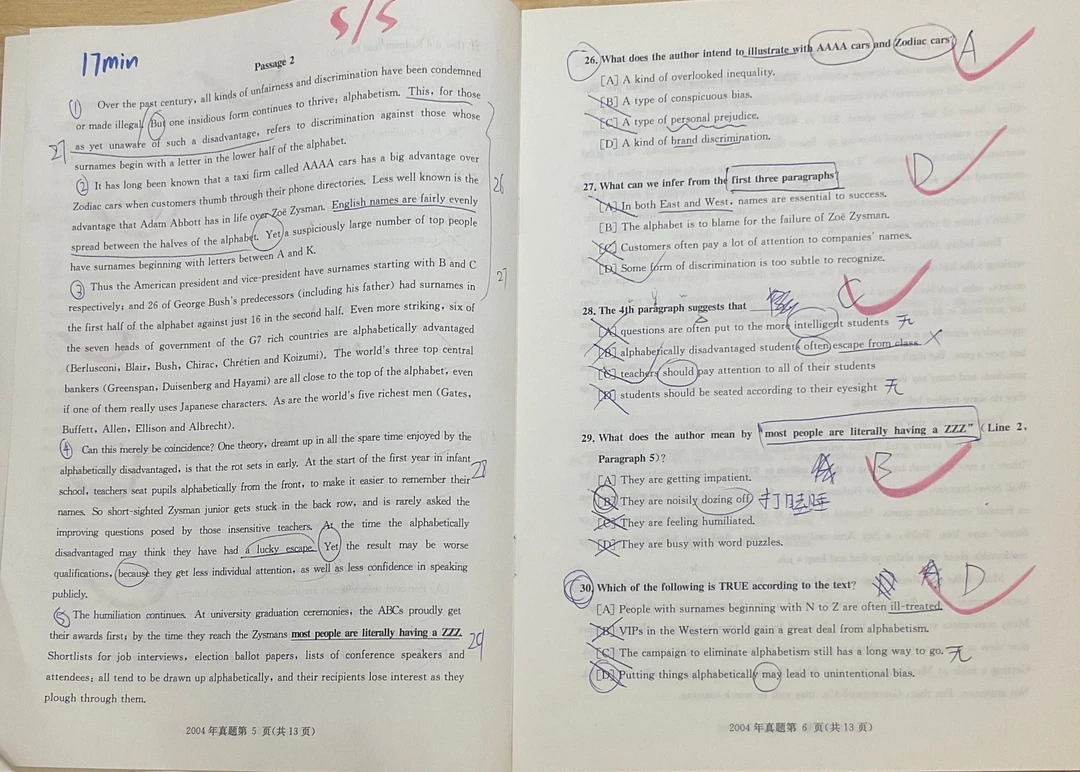 5/5
17min
Passage 2
① Over the past century, all kinds of unfairness and discrimination have been condemned
or made illegal. But one insidious form continues to thrive: alphabetism. This, for those
27 as yet unaware of such a disadvantage, refers to discrimination against those whose
surnames begin with a letter in the lower half of the alphabet.
② It has long been known that a taxi firm called AAAA cars has a big advantage over
Zodiac cars when customers thumb through their phone directories. Less well known is the 26
advantage that Adam Abbott has in life over Zoë Zysman. English names are fairly evenly
spread between the halves of the alphabet. Yet a suspiciously large number of top people
have surnames beginning with letters between A and K.
③ Thus the American president and vice-president have surnames starting with B and C 27
respectively; and 26 of George Bush's predecessors (including his father) had surnames in
the first half of the alphabet against just 16 in the second half. Even more striking, six of
the seven heads of government of the G7 rich countries are alphabetically advantaged
(Berlusconi, Blair, Bush, Chirac, Chrétien and Koizumi). The world's three top central
bankers (Greenspan, Duisenberg and Hayami) are all close to the top of the alphabet, even
if one of them really uses Japanese characters. As are the world's five richest men (Gates,
Buffett, Allen, Ellison and Albrecht).
④ Can this merely be coincidence? One theory, dreamt up in all the spare time enjoyed by the
alphabetically disadvantaged, is that the rot sets in early. At the start of the first year in infant
school, teachers seat pupils alphabetically from the front, to make it easier to remember their 28
names. So short-sighted Zysman junior gets stuck in the back row, and is rarely asked the
improving questions posed by those insensitive teachers. At the time the alphabetically
disadvantaged may think they have had a lucky escape. Yet the result may be worse
qualifications, because they get less individual attention, as well as less confidence in speaking
publicly.
⑤ The humiliation continues. At university graduation ceremonies, the ABCs proudly get
their awards first; by the time they reach the Zysmans most people are literally having a ZZZ. 29
Shortlists for job interviews, election ballot papers, lists of conference speakers and
attendees: all tend to be drawn up alphabetically, and their recipients lose interest as they
plough through them.
2004 年真题第 5 页(共13页)
26. What does the author intend to illustrate with AAAA cars and Zodiac cars? A
[A] A kind of overlooked inequality.
[B] A type of conspicuous bias.
[C] A type of personal prejudice.
[D] A kind of brand discrimination.
27. What can we infer from the first three paragraphs? D
[A] In both East and West, names are essential to success.
[B] The alphabet is to blame for the failure of Zoë Zysman.
[C] Customers often pay a lot of attention to companies' names.
[D] Some form of discrimination is too subtle to recognize.
28. The 4th paragraph suggests that C
[A] questions are often put to the more intelligent students 无
[B] alphabetically disadvantaged students often escape from class
[C] teachers should pay attention to all of their students
[D] students should be seated according to their eyesight 无
29. What does the author mean by "most people are literally having a ZZZ" (Line 2,
Paragraph 5)? B
[A] They are getting impatient.
[B] They are noisily dozing off. 打瞌睡
[C] They are feeling humiliated.
[D] They are busy with word puzzles.
30. Which of the following is TRUE according to the text? D
[A] People with surnames beginning with N to Z are often ill-treated.
[B] VIPs in the Western world gain a great deal from alphabetism.
[C] The campaign to eliminate alphabetism still has a long way to go. 无
[D] Putting things alphabetically may lead to unintentional bias.
2004 年真题第 6 页(共13页)